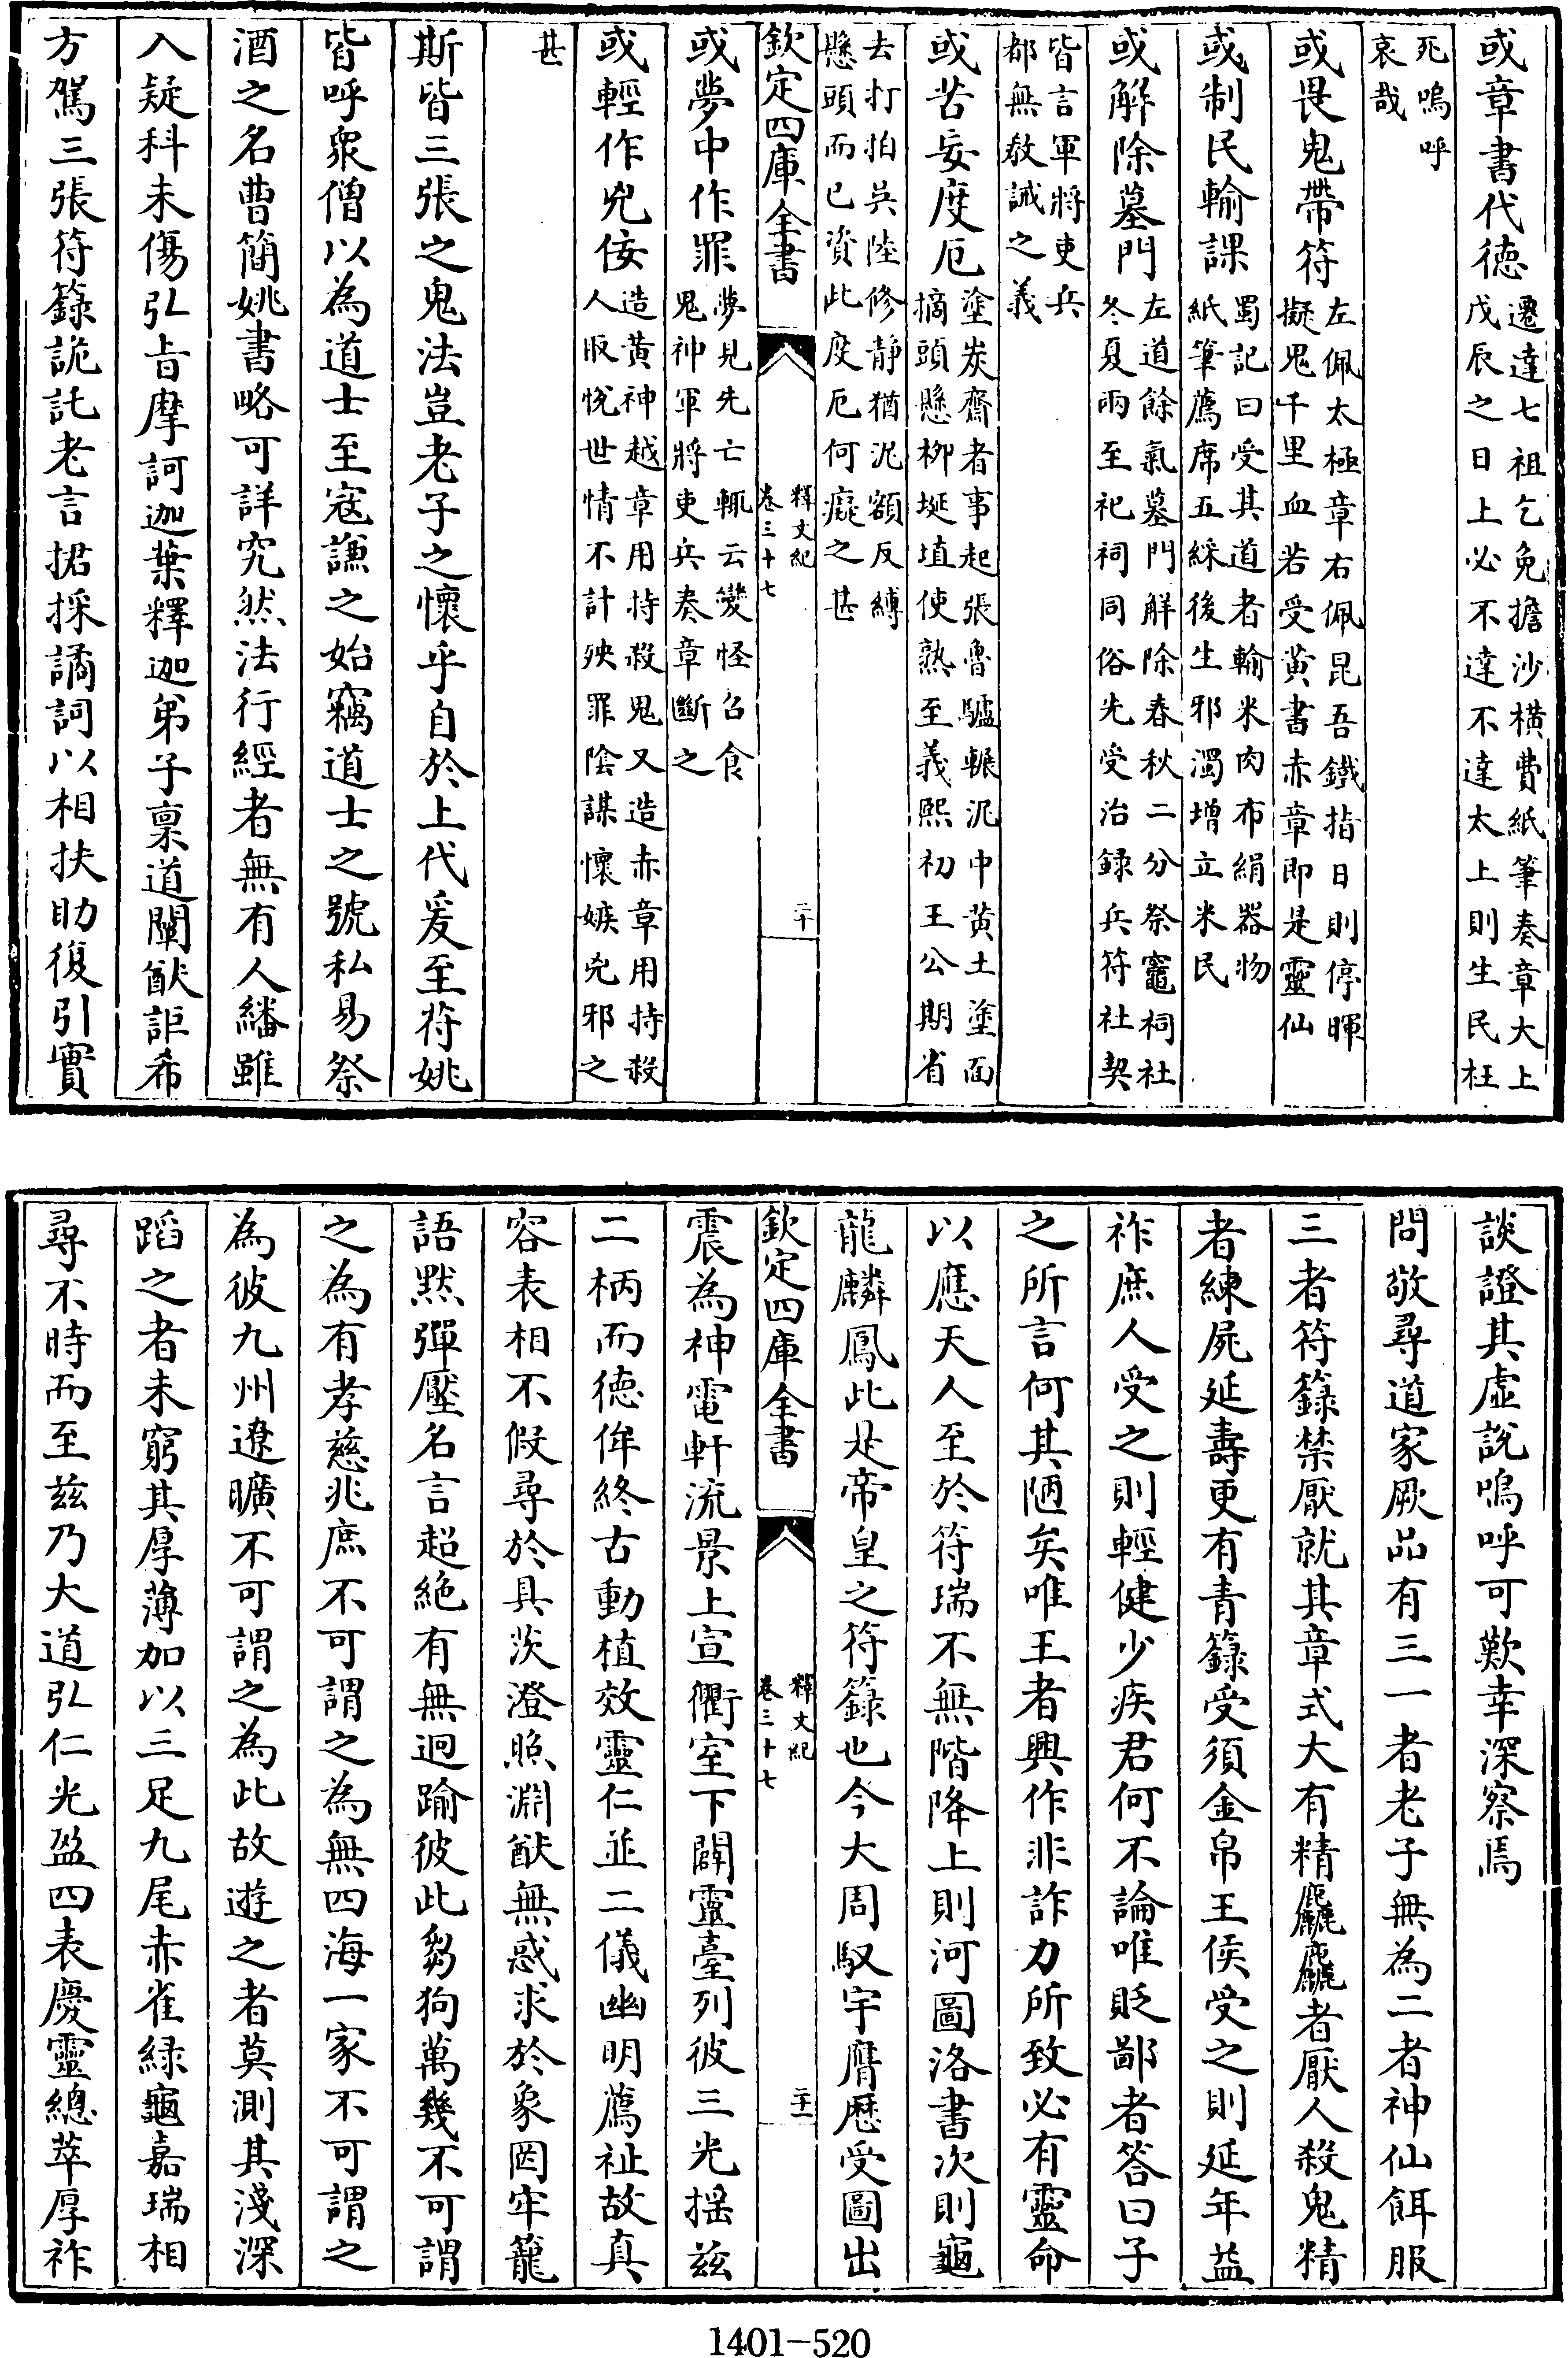 或章書代德遷達七祖乞免擔沙橫費紙筆奏章大上戊辰之日上必不達不達太上則生民枉
死嗚呼哀哉
或畏鬼帶符左佩太極章右佩昆吾鐵指日則停暉擬鬼千里血若受黃書赤章即是靈仙
或制民輸課蜀記曰受其道者輸米肉布絹器物紙筆薦席五綵後生邪濁增立米民
或解除墓門左道餘氣墓門解除春秋二分祭竈祠社冬夏兩至祀祠同俗先受治録兵符社契
皆言軍將吏兵都無敎誡之義
或苦妄度厄塗炭齋者事起張魯驢輾泥中黃土塗面摘頭懸栁埏埴使熟至義熙初王公期省
去打拍吳陸修静猶泥額反縛懸頭而已資此度厄何癡之甚
欽定四庫全書 釋文紀 卷三十七 二十
或夢中作罪夢見先亡輒云變怪召食鬼神軍將吏兵奏章斷之
或輕作兇佞造黃神越章用持殺鬼又造赤章用持殺人取悅世情不計殃罪陰謀懷嫉兇邪之
甚
斯皆三張之鬼法豈老子之懷乎自於上代爰至苻姚
皆呼衆僧以為道士至寇謙之始竊道士之號私易祭
酒之名曹簡姚書略可詳究然法行經者無有人繙雖
入疑科未傷弘旨摩訶迦葉釋迦弟子禀道闡猷詎希
方駕三張符籙詭託老言捃採譎詞以相扶助復引實
談證其虛說嗚呼可歎幸深察焉
問敬尋道家厥品有三一者老子無為二者神仙餌服
三者符籙禁厭就其章式大有精麤麤者厭人殺鬼精
者練屍延壽更有青籙受須金帛王侯受之則延年益
祚庶人受之則輕健少疾君何不論唯貶鄙者答曰子
之所言何其陋矣唯王者興作非詐力所致必有靈命
以應天人至於符瑞不無階降上則河圖洛書次則龜
龍麟鳳此是帝皇之符籙也今大周馭宇膺歴受圖出
欽定四庫全書 釋文紀 卷三十七 二十一
震為神電軒流景上宣衢室下闢靈臺列彼三光揺兹
二柄而德侔終古動植效靈仁並二儀幽明薦祉故真
容表相不假尋於具茨澄照淵猷無惑求於象罔牢籠
語黙彈壓名言超絶有無迥踰彼此芻狗萬幾不可謂
之為有孝慈兆庶不可謂之為無四海一家不可謂之
為彼九州遼曠不可謂之為此故遊之者莫測其淺深
蹈之者未窮其厚薄加以三足九尾赤雀緑龜嘉瑞相
尋不時而至兹乃大道弘仁光盈四表慶靈總萃厚祚
1401-520